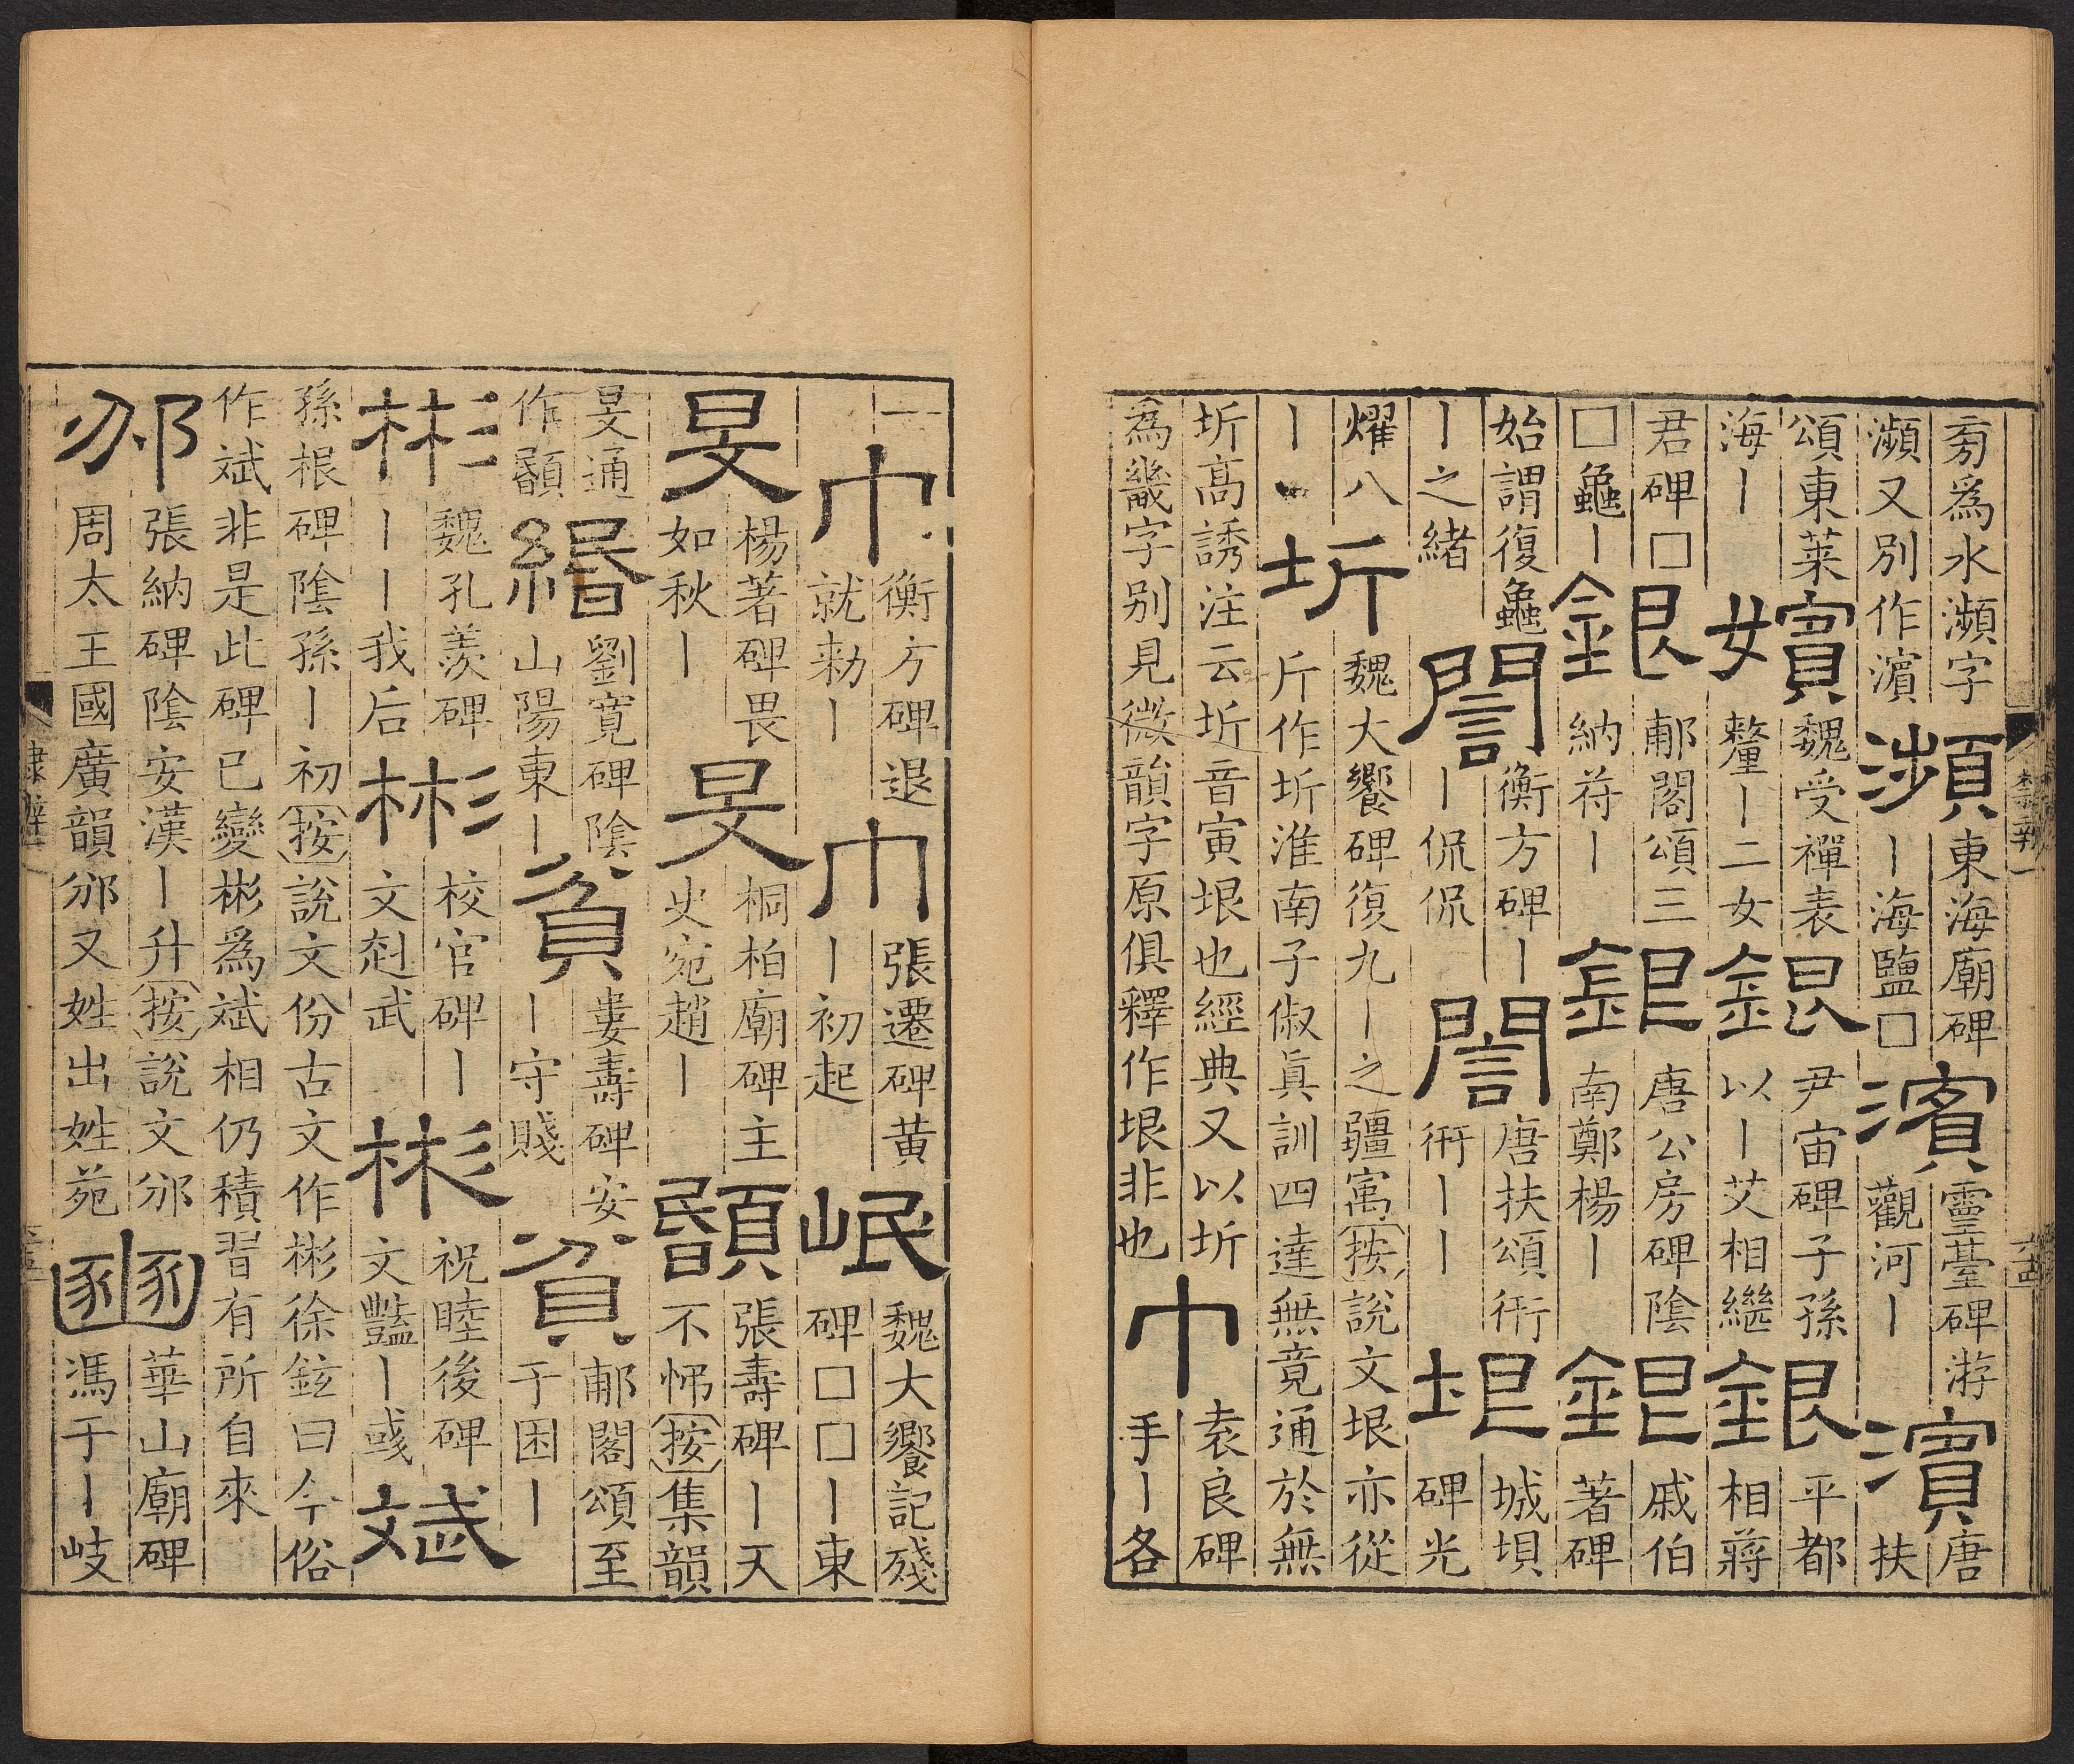 㫄爲水瀕字
瀕又別作濱
瀕
東海廟碑
｜海鹽□
濱
靈臺碑游
觀河｜
濱
唐
扶
頌東萊
海｜
嬪
魏受禪表
釐｜二女
銀
尹宙碑子孫
以｜艾相繼
銀
平都
相蔣
君碑□
□龜｜
銀
郙閣頌三
納苻｜
銀
唐公房碑陰
南鄭楊｜
銀
戚伯
著碑
始謂復龜
｜之緒
誾
衡方碑｜
｜侃侃
誾
唐扶頌衎
衎｜｜
垠
城垻
碑光
燿八
｜
圻
魏大饗碑復九｜之疆㝢按說文垠亦從
斤作圻淮南子俶眞訓四達無竟通於無
圻高誘注云圻音寅垠也經典又以圻
為畿字別見微韻字原俱釋作垠非也
巾
袁良碑
手｜各
一
巾
衡方碑退
就勑｜
巾
張遷碑黃
｜初起
岷
魏大饗記殘
碑□□｜東
旻
楊著碑畏
如秋｜
旻
桐柏廟碑主
史宛趙｜
張壽碑｜天
不悌按集韻
旻通
作
緡
劉寬碑陰
山陽東｜
貧
婁壽碑安
｜守賤
貧
郙閣頌至
于困｜
彬
魏孔羨碑
｜｜我后
彬
校官碑｜
文赳武
彬
祝睦後碑
文豔｜彧
斌
孫根碑陰孫｜初按說文份古文作彬徐鉉曰今俗
作斌非是此碑已變彬爲斌相仍積習有所自來
邠
張納碑陰安漢｜升按說文邠
周太王國廣韻邠又姓出姓苑
豳
華山廟碑
馮于｜岐